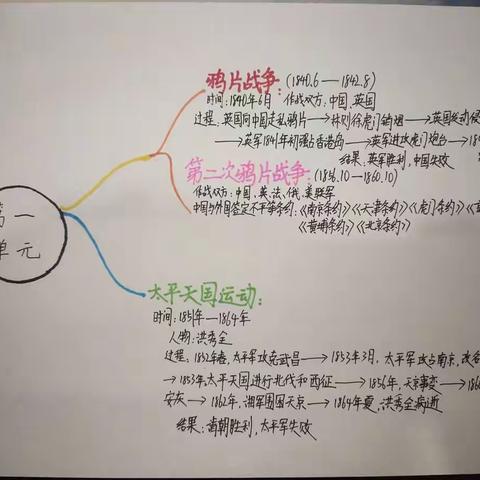 鸦片战争:(1840.6—1842.8)
时间:1840年6月 作战双方:中国、英国
过程:英国向中国走私鸦片→林则徐虎门销烟→英国发动侵
→英军1841年初强占香港岛→英军进攻虎门炮台→184
结果:英军胜利,中国失败
第二次鸦片战争:(1856.10—1860.10)
作战双方:中国、英、法、俄、美联军
中国与外国签定不平等条约:《南京条约》《天津条约》《虎门条约》
《黄埔条约》《北京条约》
第一
单元
太平天国运动:
时间:1851年—1864年
人物:洪秀全
过程:1852年春,太平军攻克武昌→1853年3月,太平军攻占南京,改名
→1853年太平天国进行北伐和西征→1856年,天京事变→186
安庆→1862年,湘军围困天京→1864年夏,洪秀全病逝
结果:清朝胜利,太平军失败